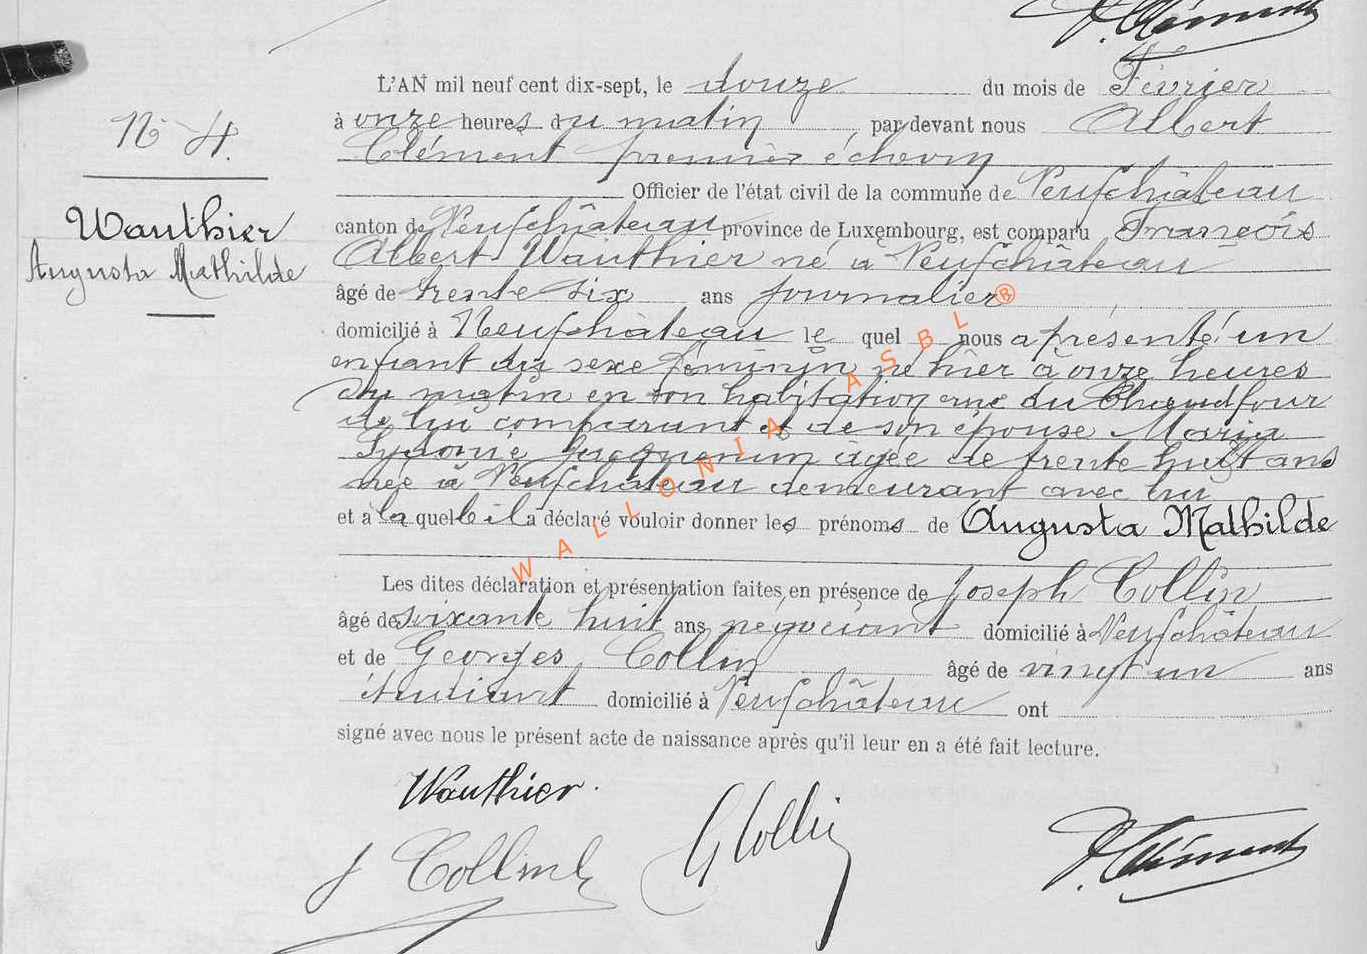 A. Clément
L'AN mil neuf cent dix-sept, le douze du mois de Février
à onze heures du matin, par devant nous Albert
Clément premier échevin
Officier de l'état civil de la commune de Neufchâteau
canton de Neufchâteau province de Luxembourg, est comparu François
Albert Wauthier né à Neufchâteau
âgé de trente six ans journalier
domicilié à Neufchâteau le quel nous a présenté un
enfant du sexe féminin, né hier à onze heures
du matin en son habitation rue du Chaudfour
de lui comparant et de son épouse Maria
Sydonie Jacquemin âgée de trente huit ans
née à Neufchâteau demeurant avec lui
et a la quelle il a déclaré vouloir donner les prénoms de Augusta Mathilde
Les dites déclaration et présentation faites en présence de Joseph Collin
âgé de soixante huit ans négociant domicilié à Neufchâteau
et de Georges Collin âgé de vingt un ans
étudiant domicilié à Neufchâteau ont
signé avec nous le présent acte de naissance après qu'il leur en a été fait lecture.
Wauthier.
J Collin
G Collin
A. Clément
No 4.
Wauthier
Augusta Mathilde
WALLONIA ASBL ®